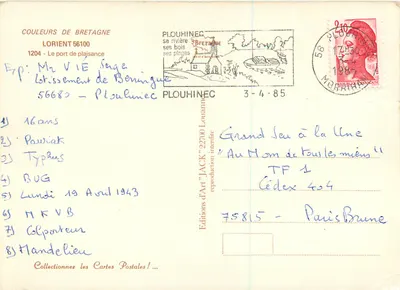 COULEURS DE BRETAGNE
LORIENT 56100
1204 - Le port de plaisance
Exp: Mr VIE Serge
Lotissement de Berringue
56680 - Plouhinec
1) 16 ans
2)
3) Typhus
4) BUG
5) Lundi 19 Août 1943
6) MFVB
7) Colporteur
8) Mandelieu
Collectionnez les Cartes Postales !...
Editions d'Art "JACK" 22700 Louannec
reproduction interdite
PLOUHINEC
sa rivière
ses bois
ses plages
Bretagne
PLOUHINEC 3-4-85
58
MORBIHAN
Grand Jeu à la Une
"Au Nom de tous les miens"
TF 1
Cédex 404
75815 - Paris Brune